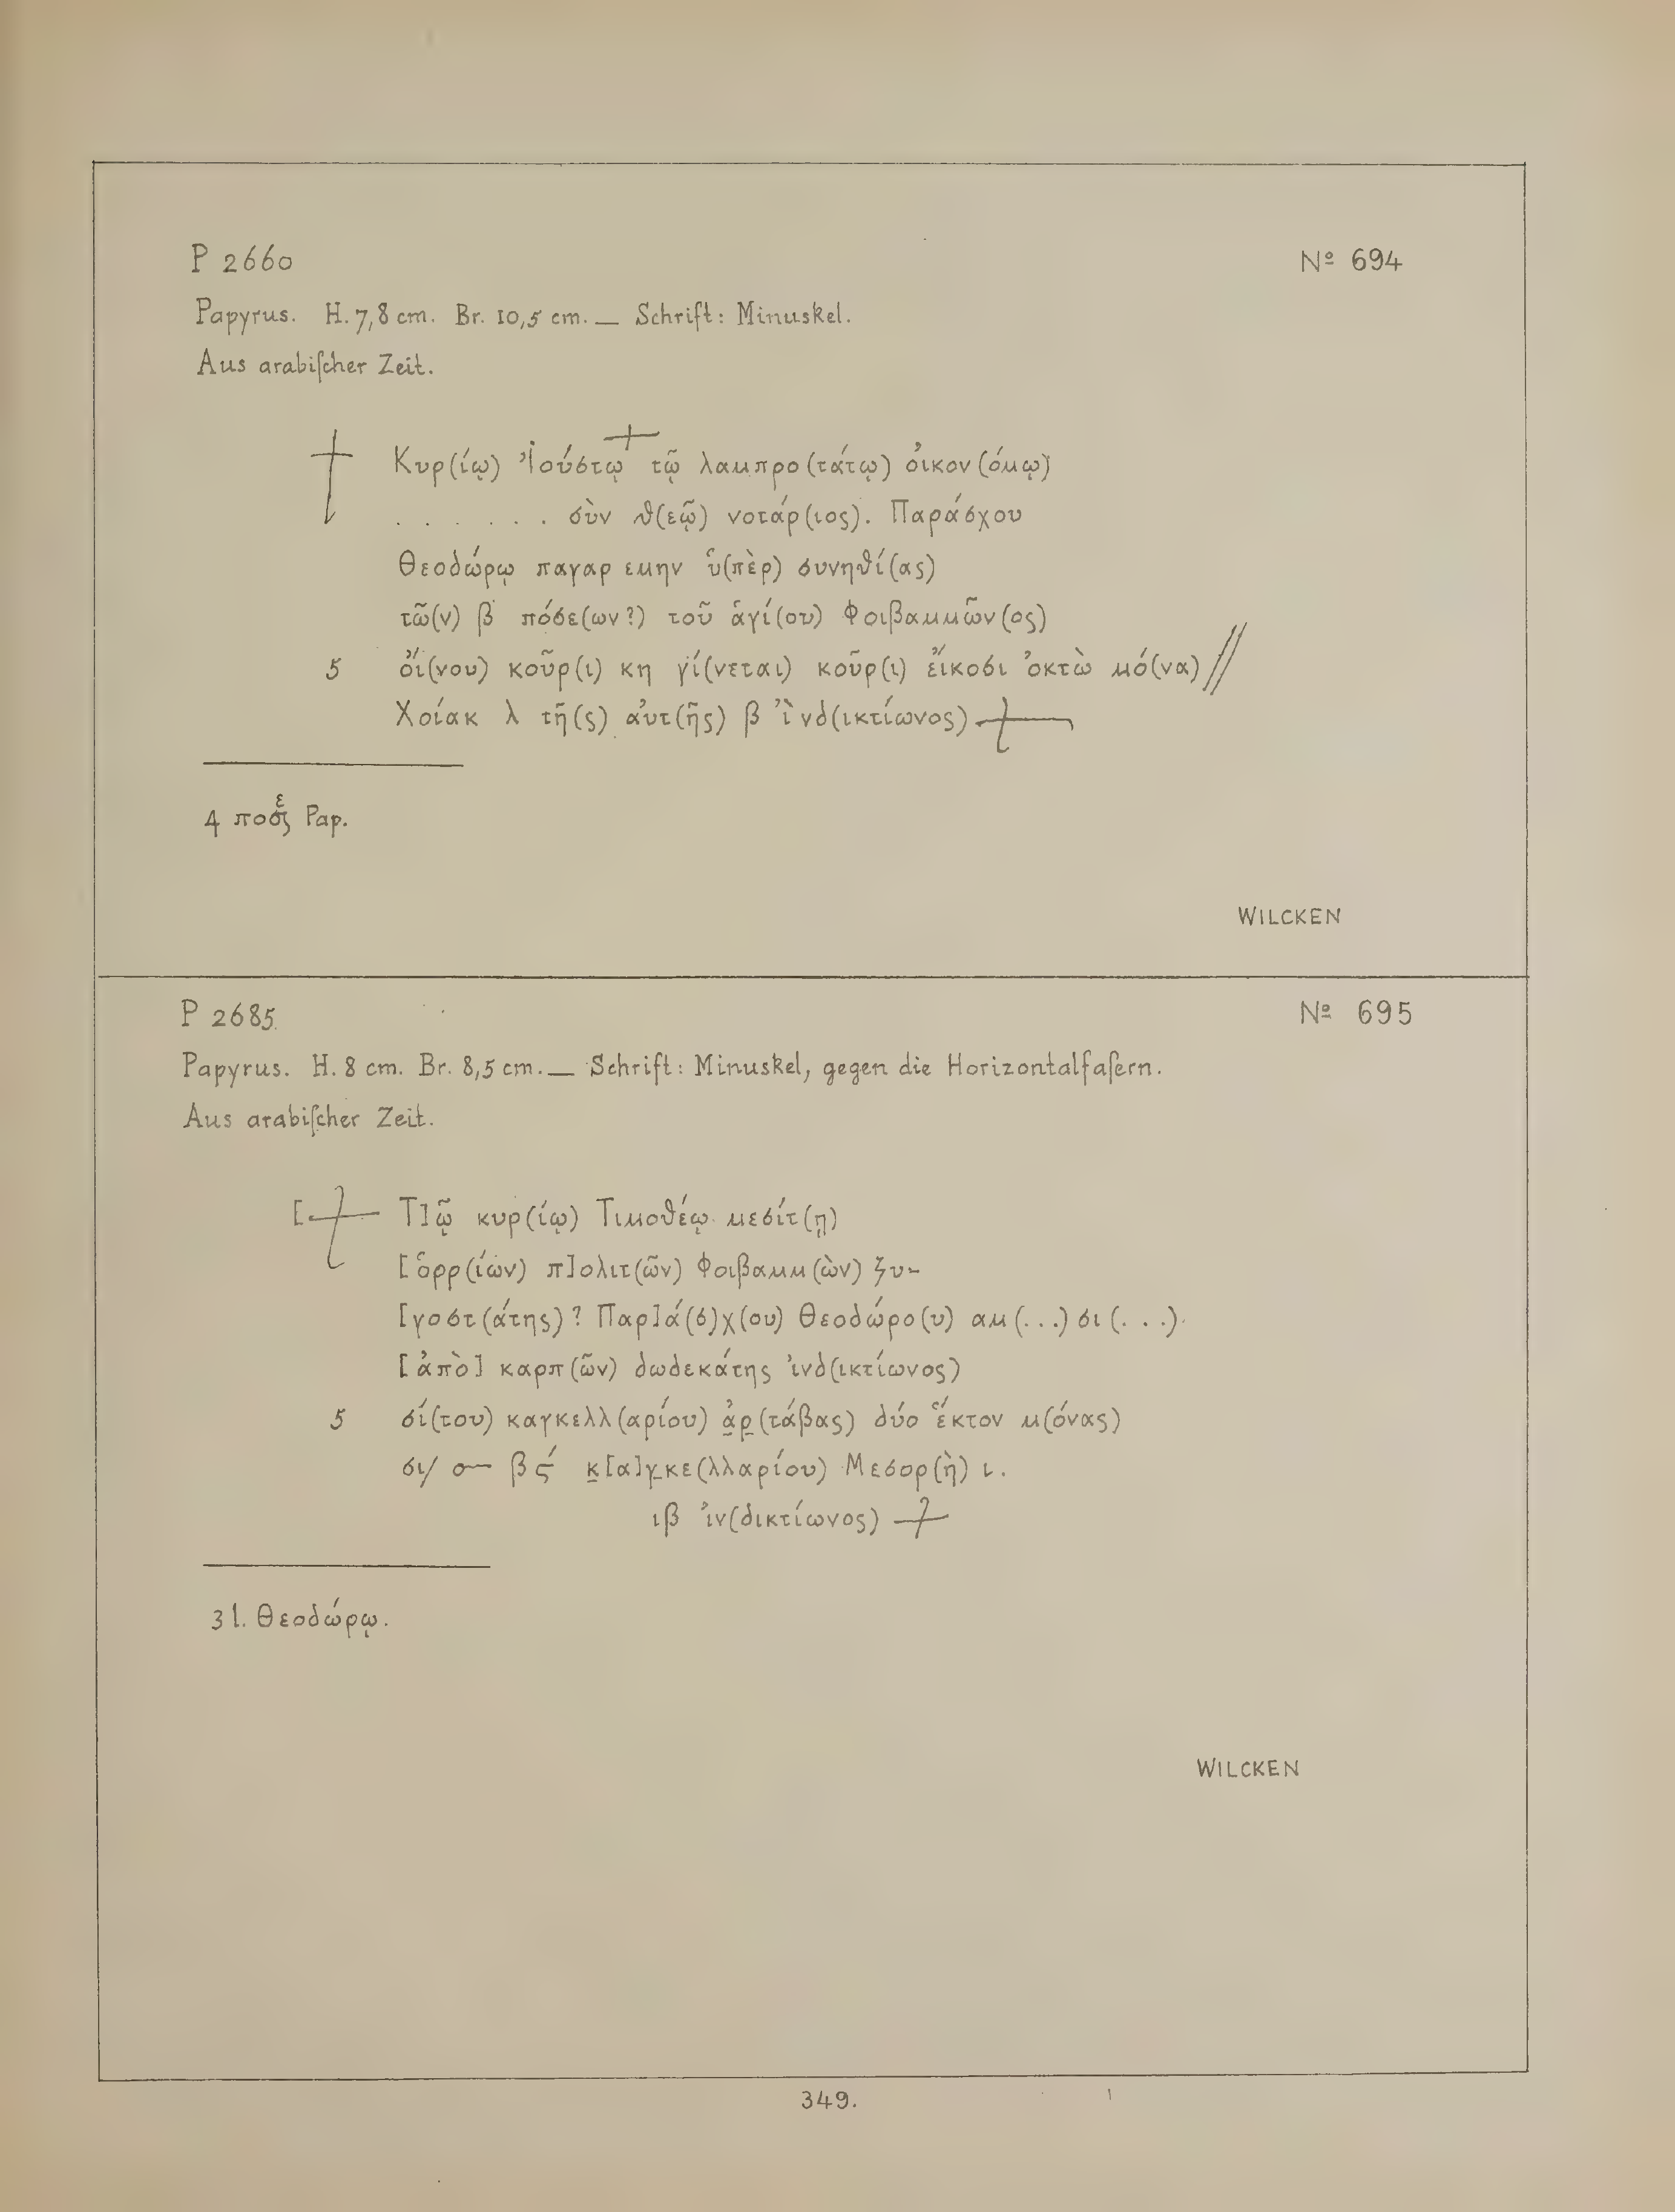 P 2660
Nº 694
Papyrus. H. 7,8 cm. Br. 10,5 cm. — Schrift: Minuskel.
Aus arabiſcher Zeit.
Κυρ(ίῳ) Ἰούστῳ τῷ λαμπρο(τάτῳ) οἰκον(όμῳ)
. . . . . . . σὺν θ(εῷ) νοτάρ(ιος). Παράσχου
Θεοδώρῳ παγαρ εμην ὑ(πὲρ) συνηθί(ας)
τῶ(ν) β πόσε(ων?) τοῦ ἁγί(ου) Φοιβαμμῶν(ος)
5 οἴ(νου) κοῦρ(ι) κη γί(νεται) κοῦρ(ι) εἴκοσι ὀκτὼ μό(να) //
Χοίακ λ τῆ(ς) αὐτ(ῆς) β ἰνδ(ικτίωνος)
4 ποσε Pap.
WILCKEN
P 2685
Nº 695
Papyrus. H. 8 cm. Br. 8,5 cm. — Schrift: Minuskel, gegen die Horizontalfaſern.
Aus arabiſcher Zeit.
[† Τ]ῷ κυρ(ίῳ) Τιμοθέῳ μεσίτ(ῃ)
[ὁρρ(ίων) π]ολιτ(ῶν) Φοιβαμμ(ὼν) ζυ-
[γοστ(άτης)? Παρ]ά(σ)χ(ου) Θεοδώρο(υ) αμ(...) σι(...)
[ἀπὸ] καρπ(ῶν) δωδεκάτης ἰνδ(ικτίωνος)
5 σί(του) καγκελλ(αρίου) ἀ̣ρ̣(τάβας) δύο ἕκτον μ(όνας)
σι/ ο— β ϛ́ κ̣[α]γ̣κε(λλαρίου) Μεσορ(ὴ) ι.
ιβ ἰν(δικτίωνος) †
3 l. Θεοδώρῳ.
WILCKEN
349.